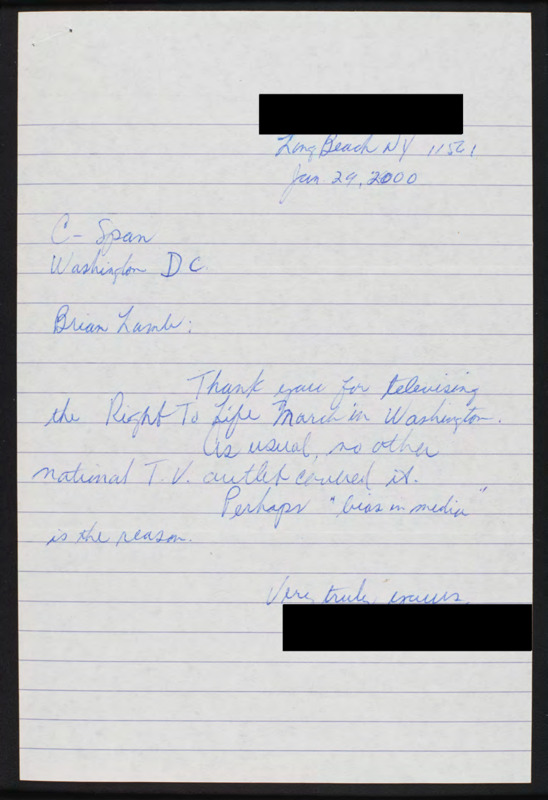 Long Beach NY 11561
Jan 29, 2000
C-Span
Washington D C.
Brian Lamb:
Thank you for televising
the Right To Life March in Washington.
As usual, no other
national T.V. outlet covered it.
Perhaps "bias in media"
is the reason.
Very truly yours,